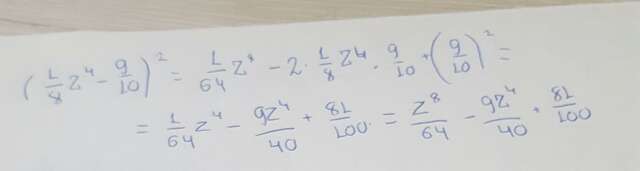 (1/8 z⁴ - 9/10)² = 1/64 z⁸ - 2 · 1/8 z⁴ · 9/10 + (9/10)² =
= 1/64 z⁴ - 9z⁴/40 + 81/100 = z⁸/64 - 9z⁴/40 + 81/100